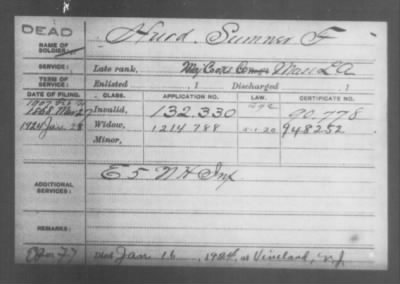 DEAD
NAME OF SOLDIER: Hurd, Sumner F
SERVICE: Late rank, Cook's Mass L A
TERM OF SERVICE: Enlisted , 1 Discharged , 1
DATE OF FILING. CLASS. APPLICATION NO. LAW. CERTIFICATE NO.
1868 Mar Invalid, 132.330 90.778
1924 Jan. 28 Widow, 1214788 5-1-20 948252
Minor,
ADDITIONAL SERVICES: E 5 N H Inf
REMARKS:
Died Jan 16, 1924, at Vineland, N.J.